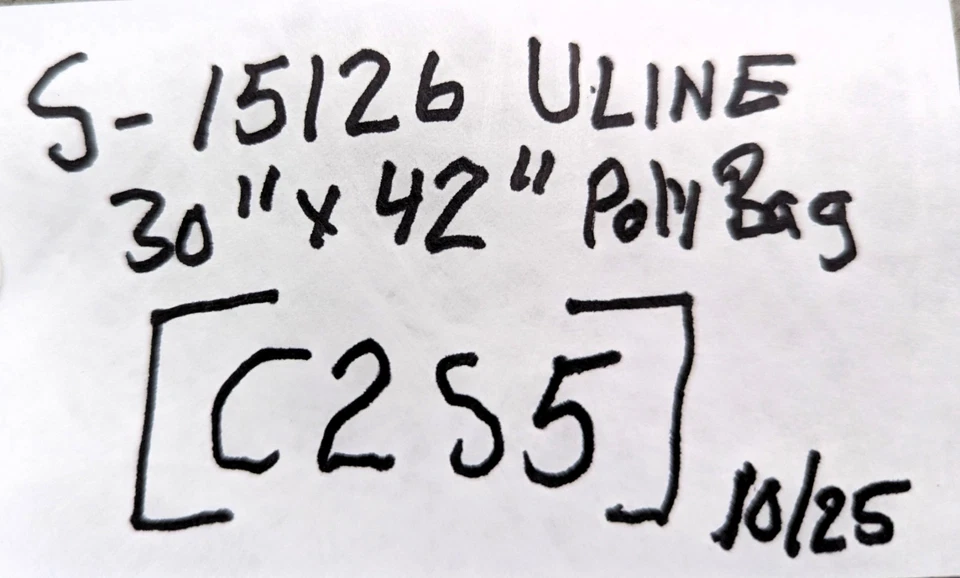 S-15126 ULINE
30" x 42" Poly Bag
[C2S5]
10/25